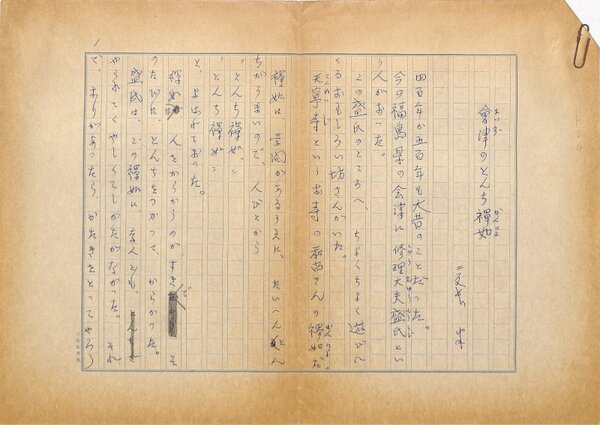 會津のとんち禪如
四百年か五百年も大昔のことだった。
今の福島県の会津に修理大夫盛氏とい
う人があった。
この盛氏のところへ、ちょくちょく遊びに
くるおもしろい坊さんがいた。
天寧寺というお寺の
さんの禪如だ。
禪如は、学問があるうえに、たいへんとん
ちがうまいので、人びとから
"とんち禪如、"
"とんち禪如"
と、よばれておった。
禪如
人をからかうのがすき
だ
そ
のたびに、とんちをつかって、からかった。
盛氏は、この禪如に なんども、
やられてくやしくてしかたがなかった。それ
で、おりがあったら かたきをとってやろう